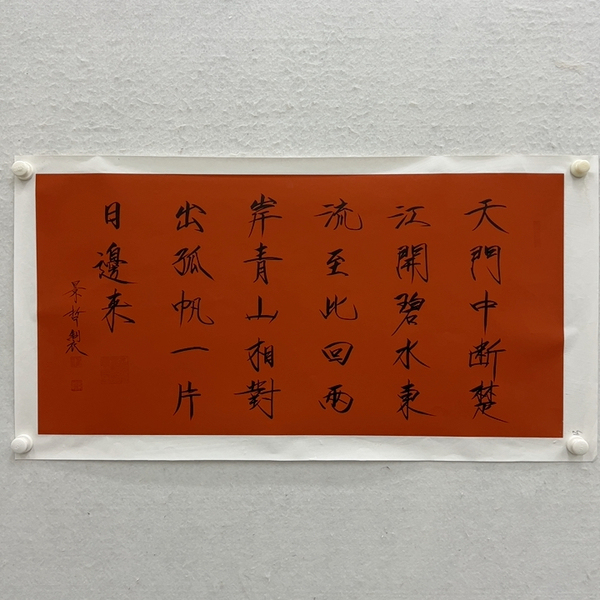 天門中断楚
江開碧水東
流至此回兩
岸青山相對
出孤帆一片
日邊来
景哲製